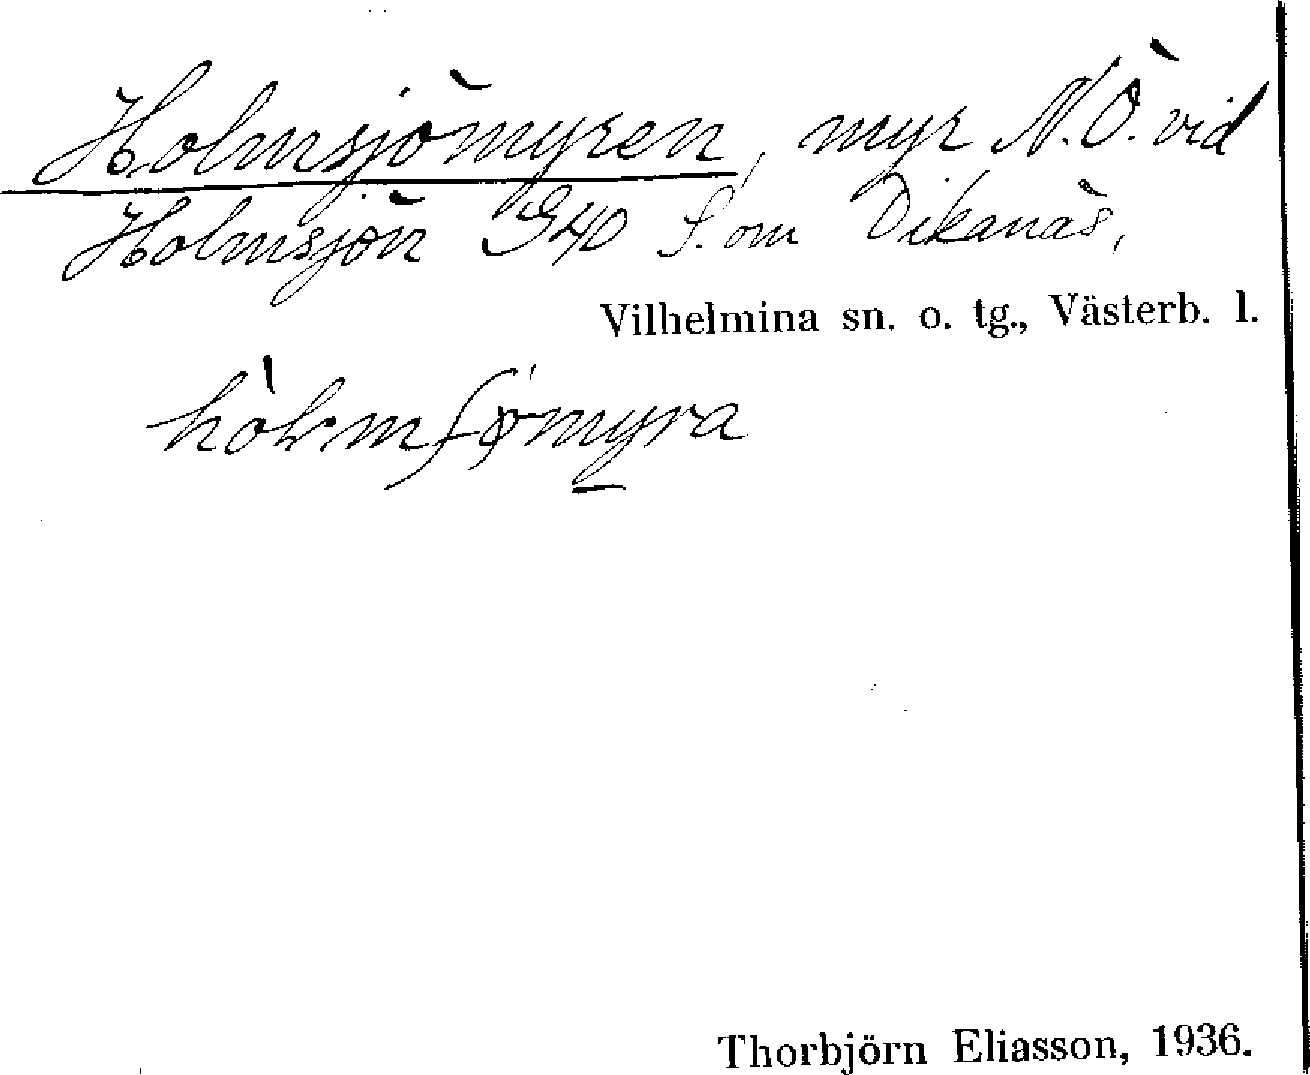 Holmsjömyren, myr N.Ö. vid
Holmsjön 940 S. om Dikanäs,
Vilhelmina sn. o. tg., Västerb. l.
Thorbjörn Eliasson, 1936.